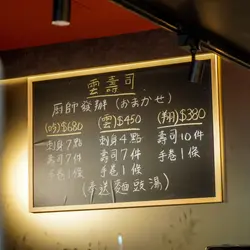 雲壽司
廚師發辦 (おまかせ)
(吟) $680 (雲) $450 (翔) $380
刺身7點 刺身4點 壽司10件
壽司7件 壽司7件 手卷1條
手卷1條 手卷1條
(奉送麵頭湯)